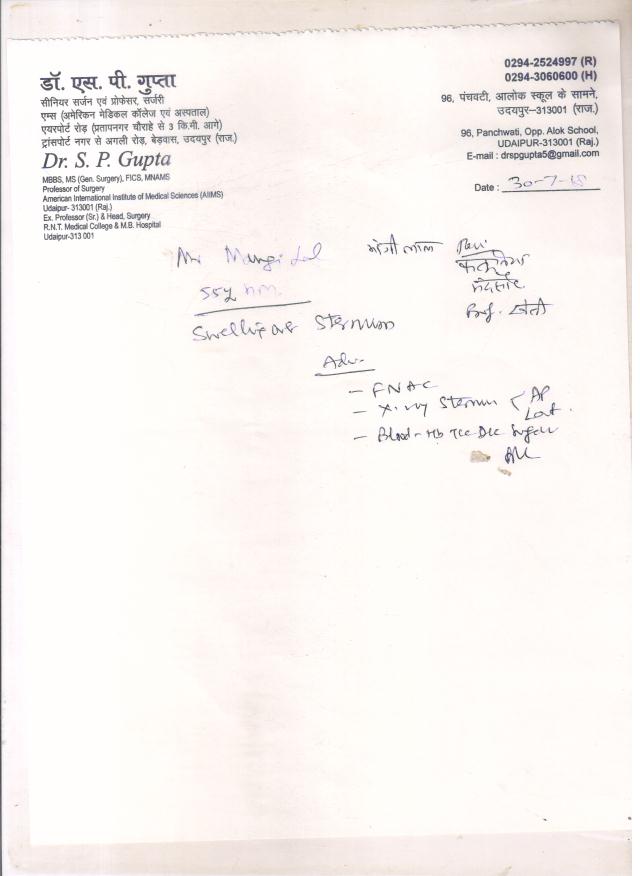 डॉ. एस. पी. गुप्ता
सीनियर सर्जन एवं प्रोफेसर, सर्जरी
एम्स (अमेरिकन मेडिकल कॉलेज एवं अस्पताल)
एयरपोर्ट रोड़ (प्रतापनगर चौराहे से 3 कि.मी. आगे)
ट्रांसपोर्ट नगर से अगली रोड़, बेड़वास, उदयपुर (राज.)
Dr. S. P. Gupta
MBBS, MS (Gen. Surgery), FICS, MNAMS
Professor of Surgery
American International Institute of Medical Sciences (AIIMS)
Udaipur- 313001 (Raj.)
Ex. Professor (Sr.) & Head, Surgery
R.N.T. Medical College & M.B. Hospital
Udaipur-313 001
0294-2524997 (R)
0294-3060600 (H)
96, पंचवटी, आलोक स्कूल के सामने,
उदयपुर–313001 (राज.)
96, Panchwati, Opp. Alok School,
UDAIPUR-313001 (Raj.)
E-mail : drspgupta5@gmail.com
Date : 30-7-18
Mr Mangi Lal मांगीलाल
55y
Swelling over Sternum
Adv.
- FNAC
- X-ray Sternum < AP
Lat.
- Blood - Hb TLC DLC Sugar